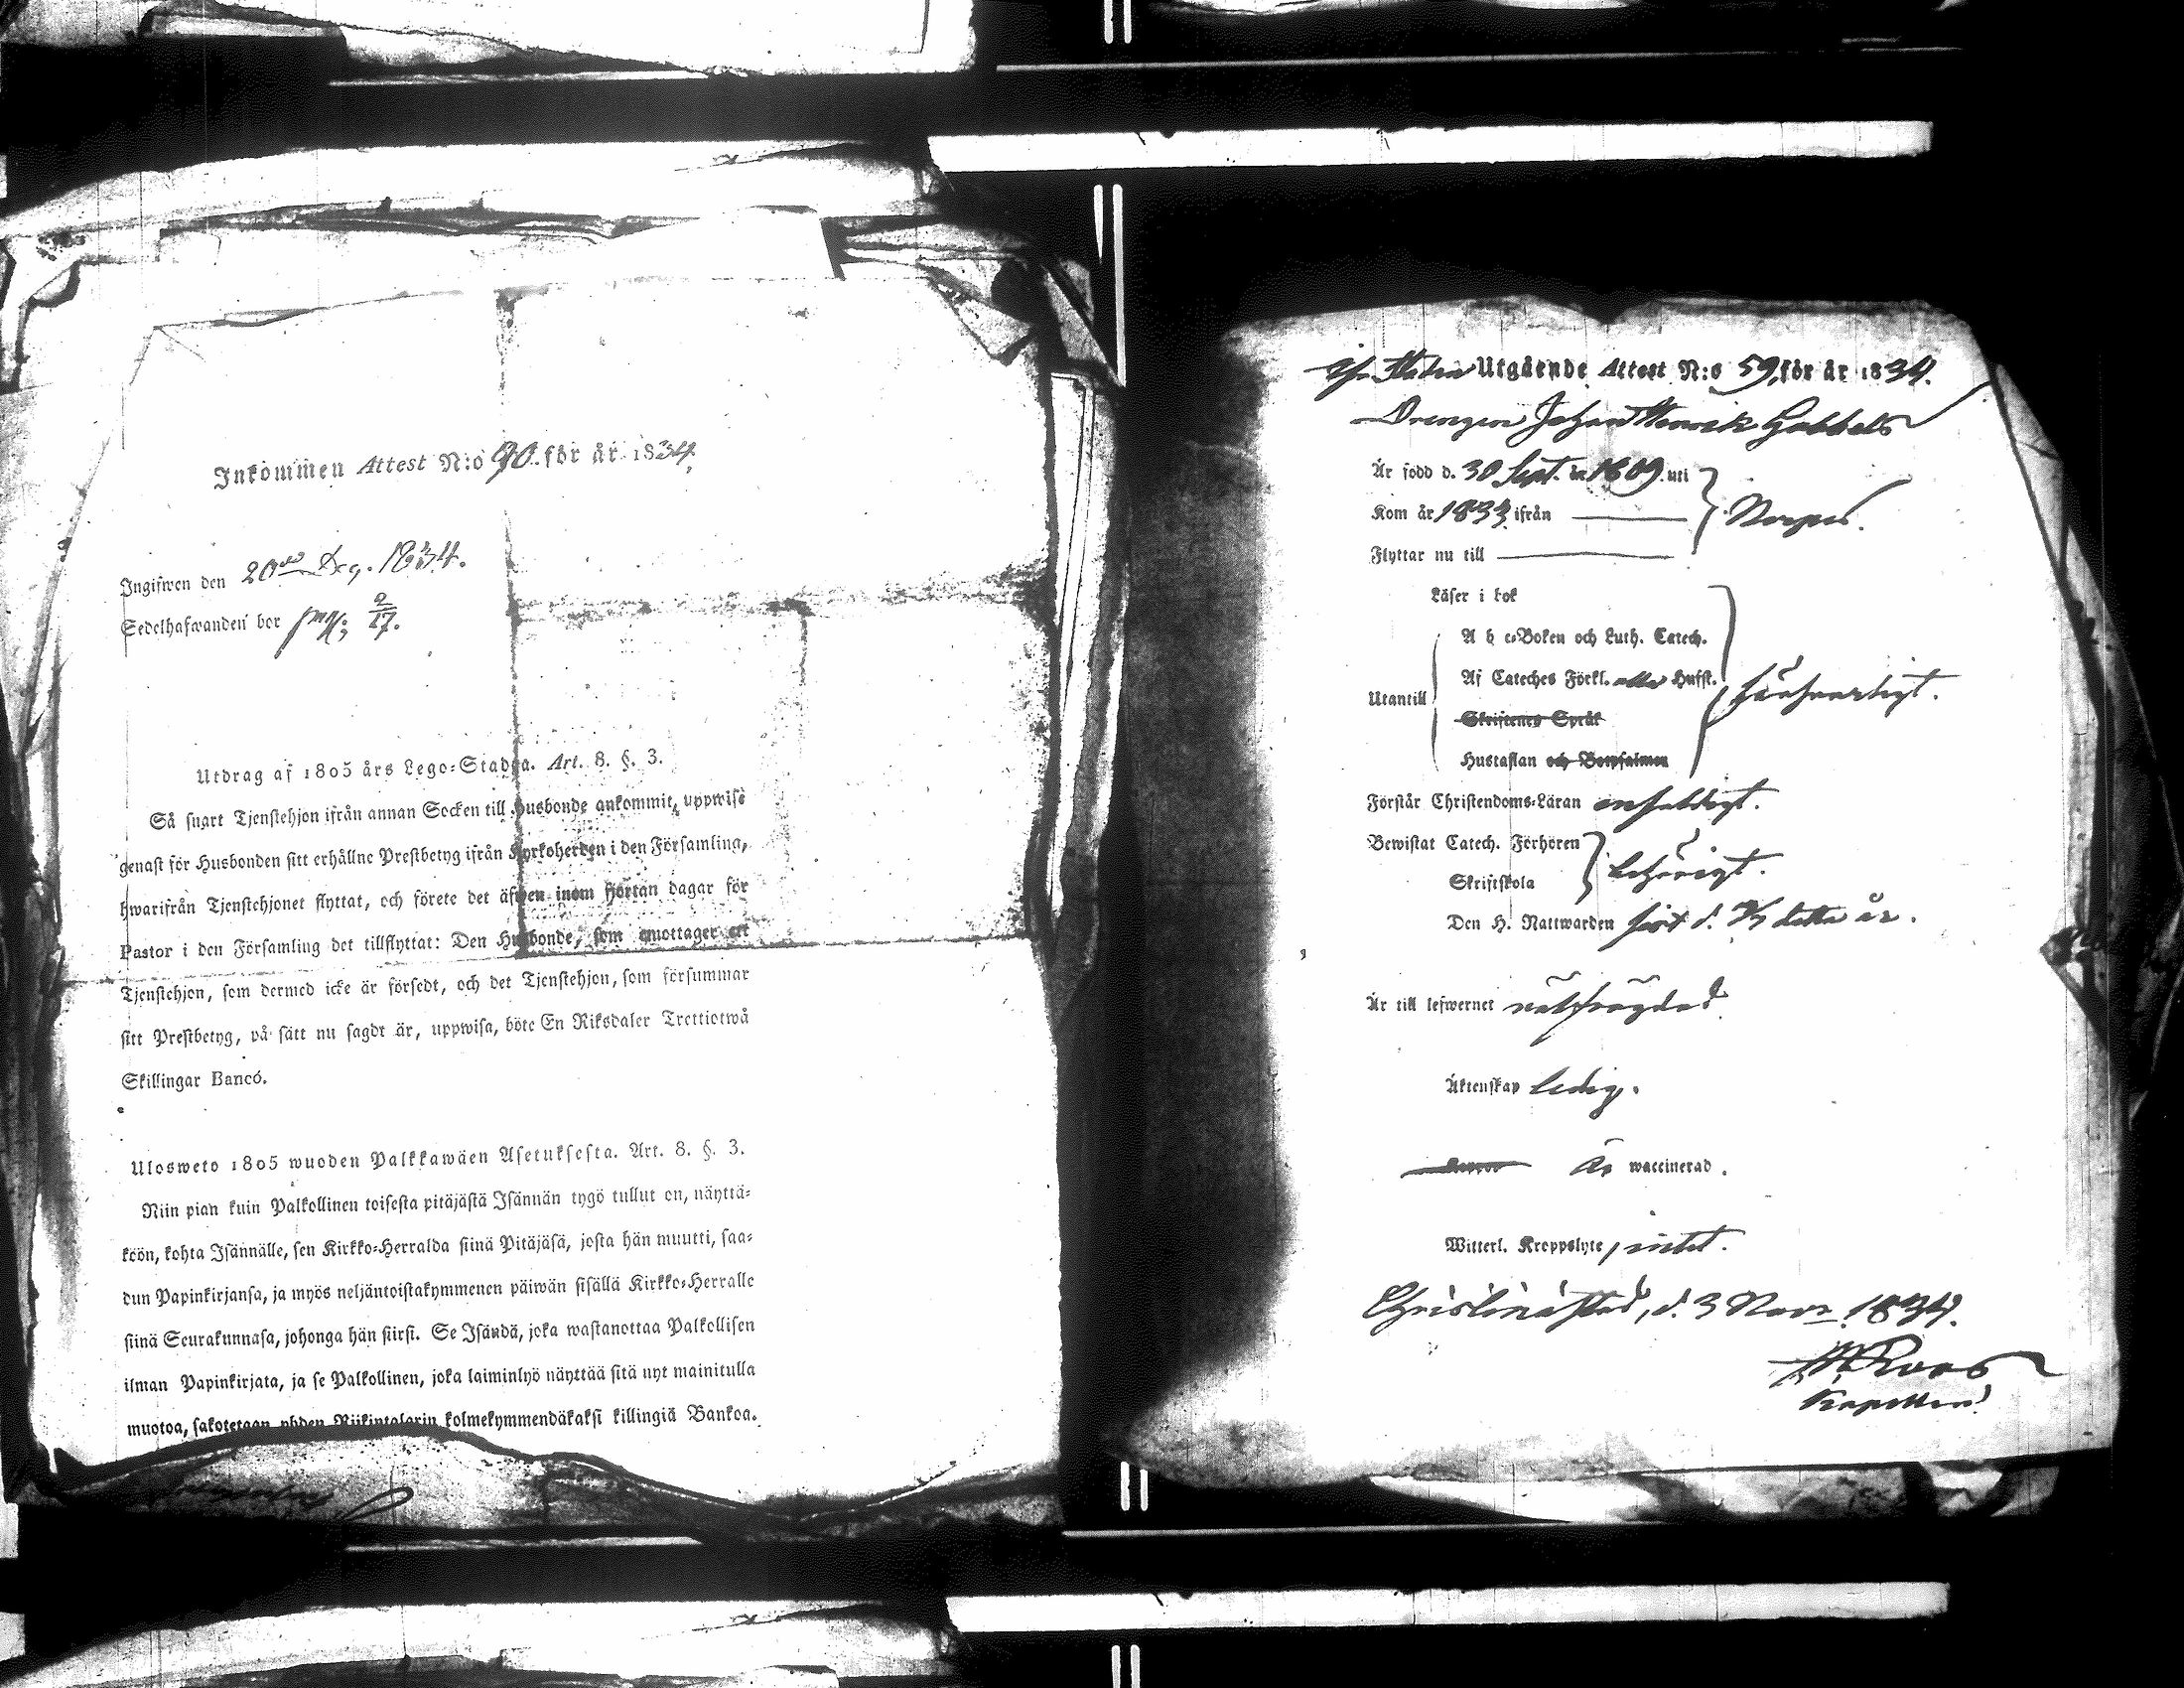 Inkommen Attest N:o 90. för år 1834.
Ingifwen den 20de Dec. 1834.
Sedelhafwanden bor
Utdrag af 1805 års Lego-Stadga. Art. 8. §. 3.
Så snart Tjenstehjon ifrån annan Socken till Husbonde ankommit, uppwise
genast för Husbonden sitt erhållne Prestbetyg ifrån Kyrkoherden i den Församling,
hwarifrån Tjenstehjonet flyttat, och förete det äfwen inom fjortan dagar för
Pastor i den Församling det tillflyttat: Den Husbonde, som emottager ett
Tjenstehjon, som dermed icke är försedt, och det Tjenstehjon, som försummar
sitt Prestbetyg, på sätt nu sagdt är, uppwisa, böte En Riksdaler Trettiotwå
Skillingar Banco.
Ulosweto 1805 wuoden Palkkawäen Asetuksesta. Art. 8. §. 3.
Niin pian kuin Palkollinen toisesta pitäjästä Isännän tygö tullut on, näyttä-
köön, kohta Isännälle, sen Kirkko-Herralda siinä Pitäjäsä, josta hän muutti, saa-
dun Papinkirjansa, ja myös neljäntoistakymmenen päiwän sisällä Kirkko-Herralle
siinä Seurakunnasa, johonga hän siirsi. Se Isändä, joka wastanottaa Palkollisen
ilman Papinkirjata, ja se Palkollinen, joka laiminlyö näyttää sitä nyt mainitulla
muotoa, sakotetaan yhden Riikintalarin kolmekymmendäkaksi killingiä Bankoa.
Utgående Attest N:o 59. för år 1834.
Drengen Johan Henrik Gabbels
Är född d. 30 Sept. år 1809. uti
Kom år 1833 ifrån
Norpes.
Flyttar nu till
Läser i bok
A b c-Boken och Luth. Catech.
Af Cateches Förkl. eller Husst.
Utantill
försvarligt.
Skriftenes Språk
Hustaflan och Botpsalmen
Förstår Christendoms-Läran enfaldigt.
Bewistat Catech. Förhören
behörigt.
Skriftskola
Den H. Nattwarden sist d. detta år.
Är till lefwernet välfrägdad.
Äktenskap ledig.
Är waccinerad.
Witterl. Kroppslyte, intet.
Christinæstad, d. 3 Novr. 1834.
Roos
Kapellan